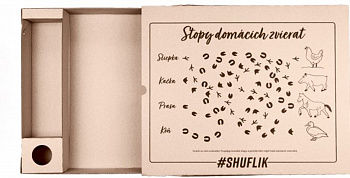 Stopy domácich zvierat
Sliepka
Kačka
Prasa
Kôň
#SHUFLIK